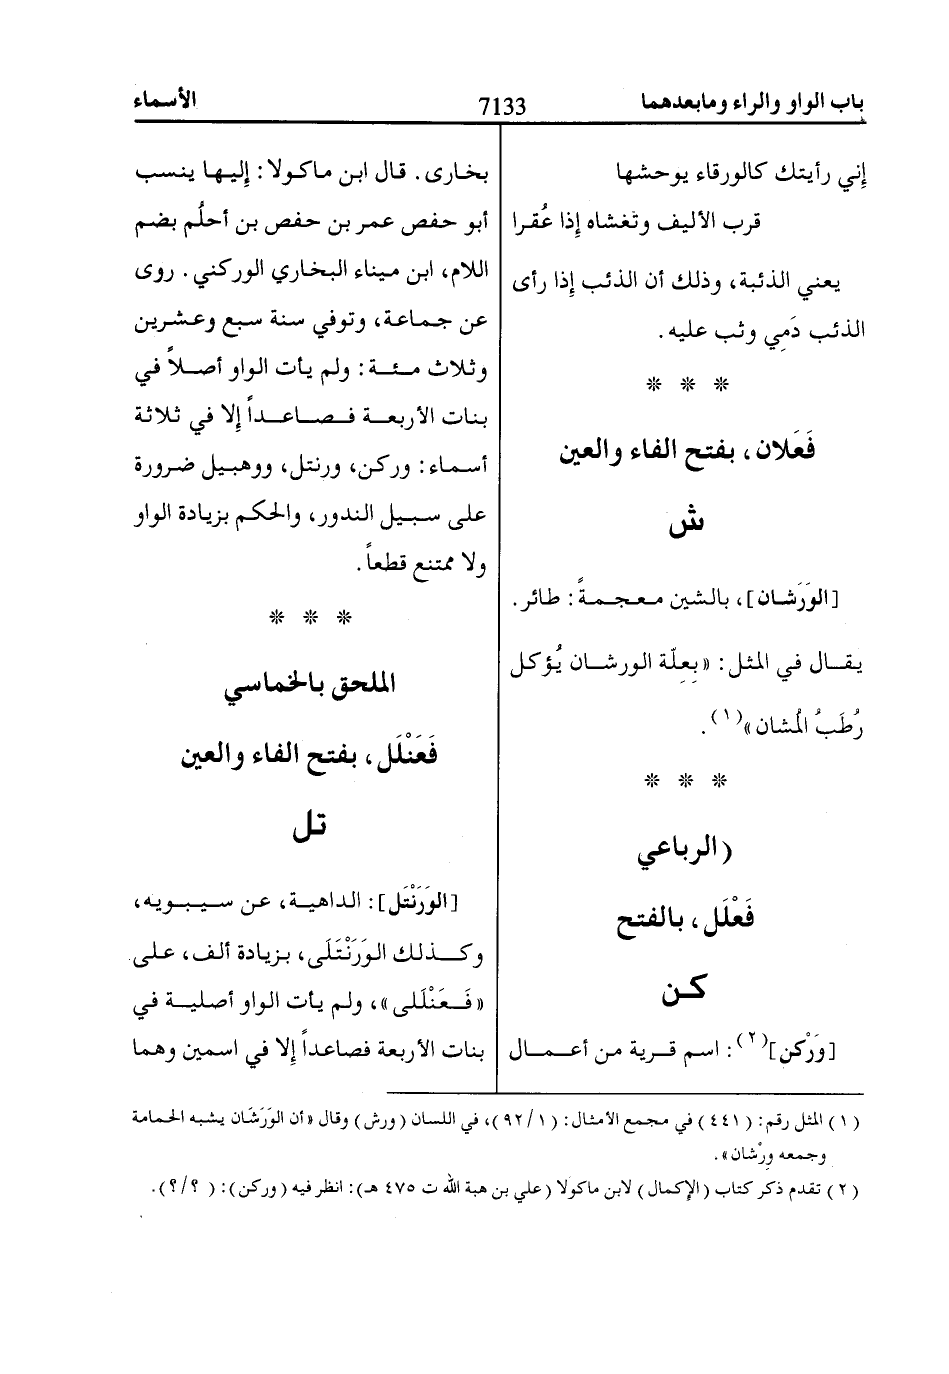 باب الواو والراء ومابعدهما
7133
الأسماء
إني رأيتك كالورقاء يوحشها
قرب الأليف وتغشاه إذا عُقرا
يعني الذئبة، وذلك أن الذئب إذا رأى
الذئب دَمِي وثب عليه.
* * *
فَعَلان، بفتح الفاء والعين
ش
[الوَرَشان]، بالشين معجمةً: طائر.
يقال في المثل: «بِعِلّة الورشان يُؤكل
رُطَبُ المُشان»(١).
* * *
(الرباعي
فَعْلَل، بالفتح
كن
[وَرْكن](٢): اسم قرية من أعمال
بخارى. قال ابن ماكولا: إليها ينسب
أبو حفص عمر بن حفص بن أحلُم بضم
اللام، ابن ميناء البخاري الوركني. روى
عن جماعة، وتوفي سنة سبع وعشرين
وثلاث مئة: ولم يأت الواو أصلاً في
بنات الأربعة فصاعداً إلا في ثلاثة
أسماء: وركن، ورنتل، ووهبيل ضرورة
على سبيل الندور، والحكم بزيادة الواو
ولا ممتنع قطعاً.
* * *
الملحق بالخماسي
فَعَنْلَل، بفتح الفاء والعين
تل
[الوَرَنْتَل]: الداهية، عن سيبويه،
وكذلك الوَرَنْتَلَى، بزيادة ألف، على
«فَعَنْلَلى»، ولم يأت الواو أصلية في
بنات الأربعة فصاعداً إلا في اسمين وهما
(١) المثل رقم: (٤٤١) في مجمع الأمثال: (٩٢/١)، في اللسان (ورش) وقال «أن الوَرَشَان يشبه الحمامة
وجمعه وِرْشان».
(٢) تقدم ذكر كتاب (الإكمال) لابن ماكولا (علي بن هبة الله ت ٤٧٥ هـ): انظر فيه (وركن): (؟/؟).